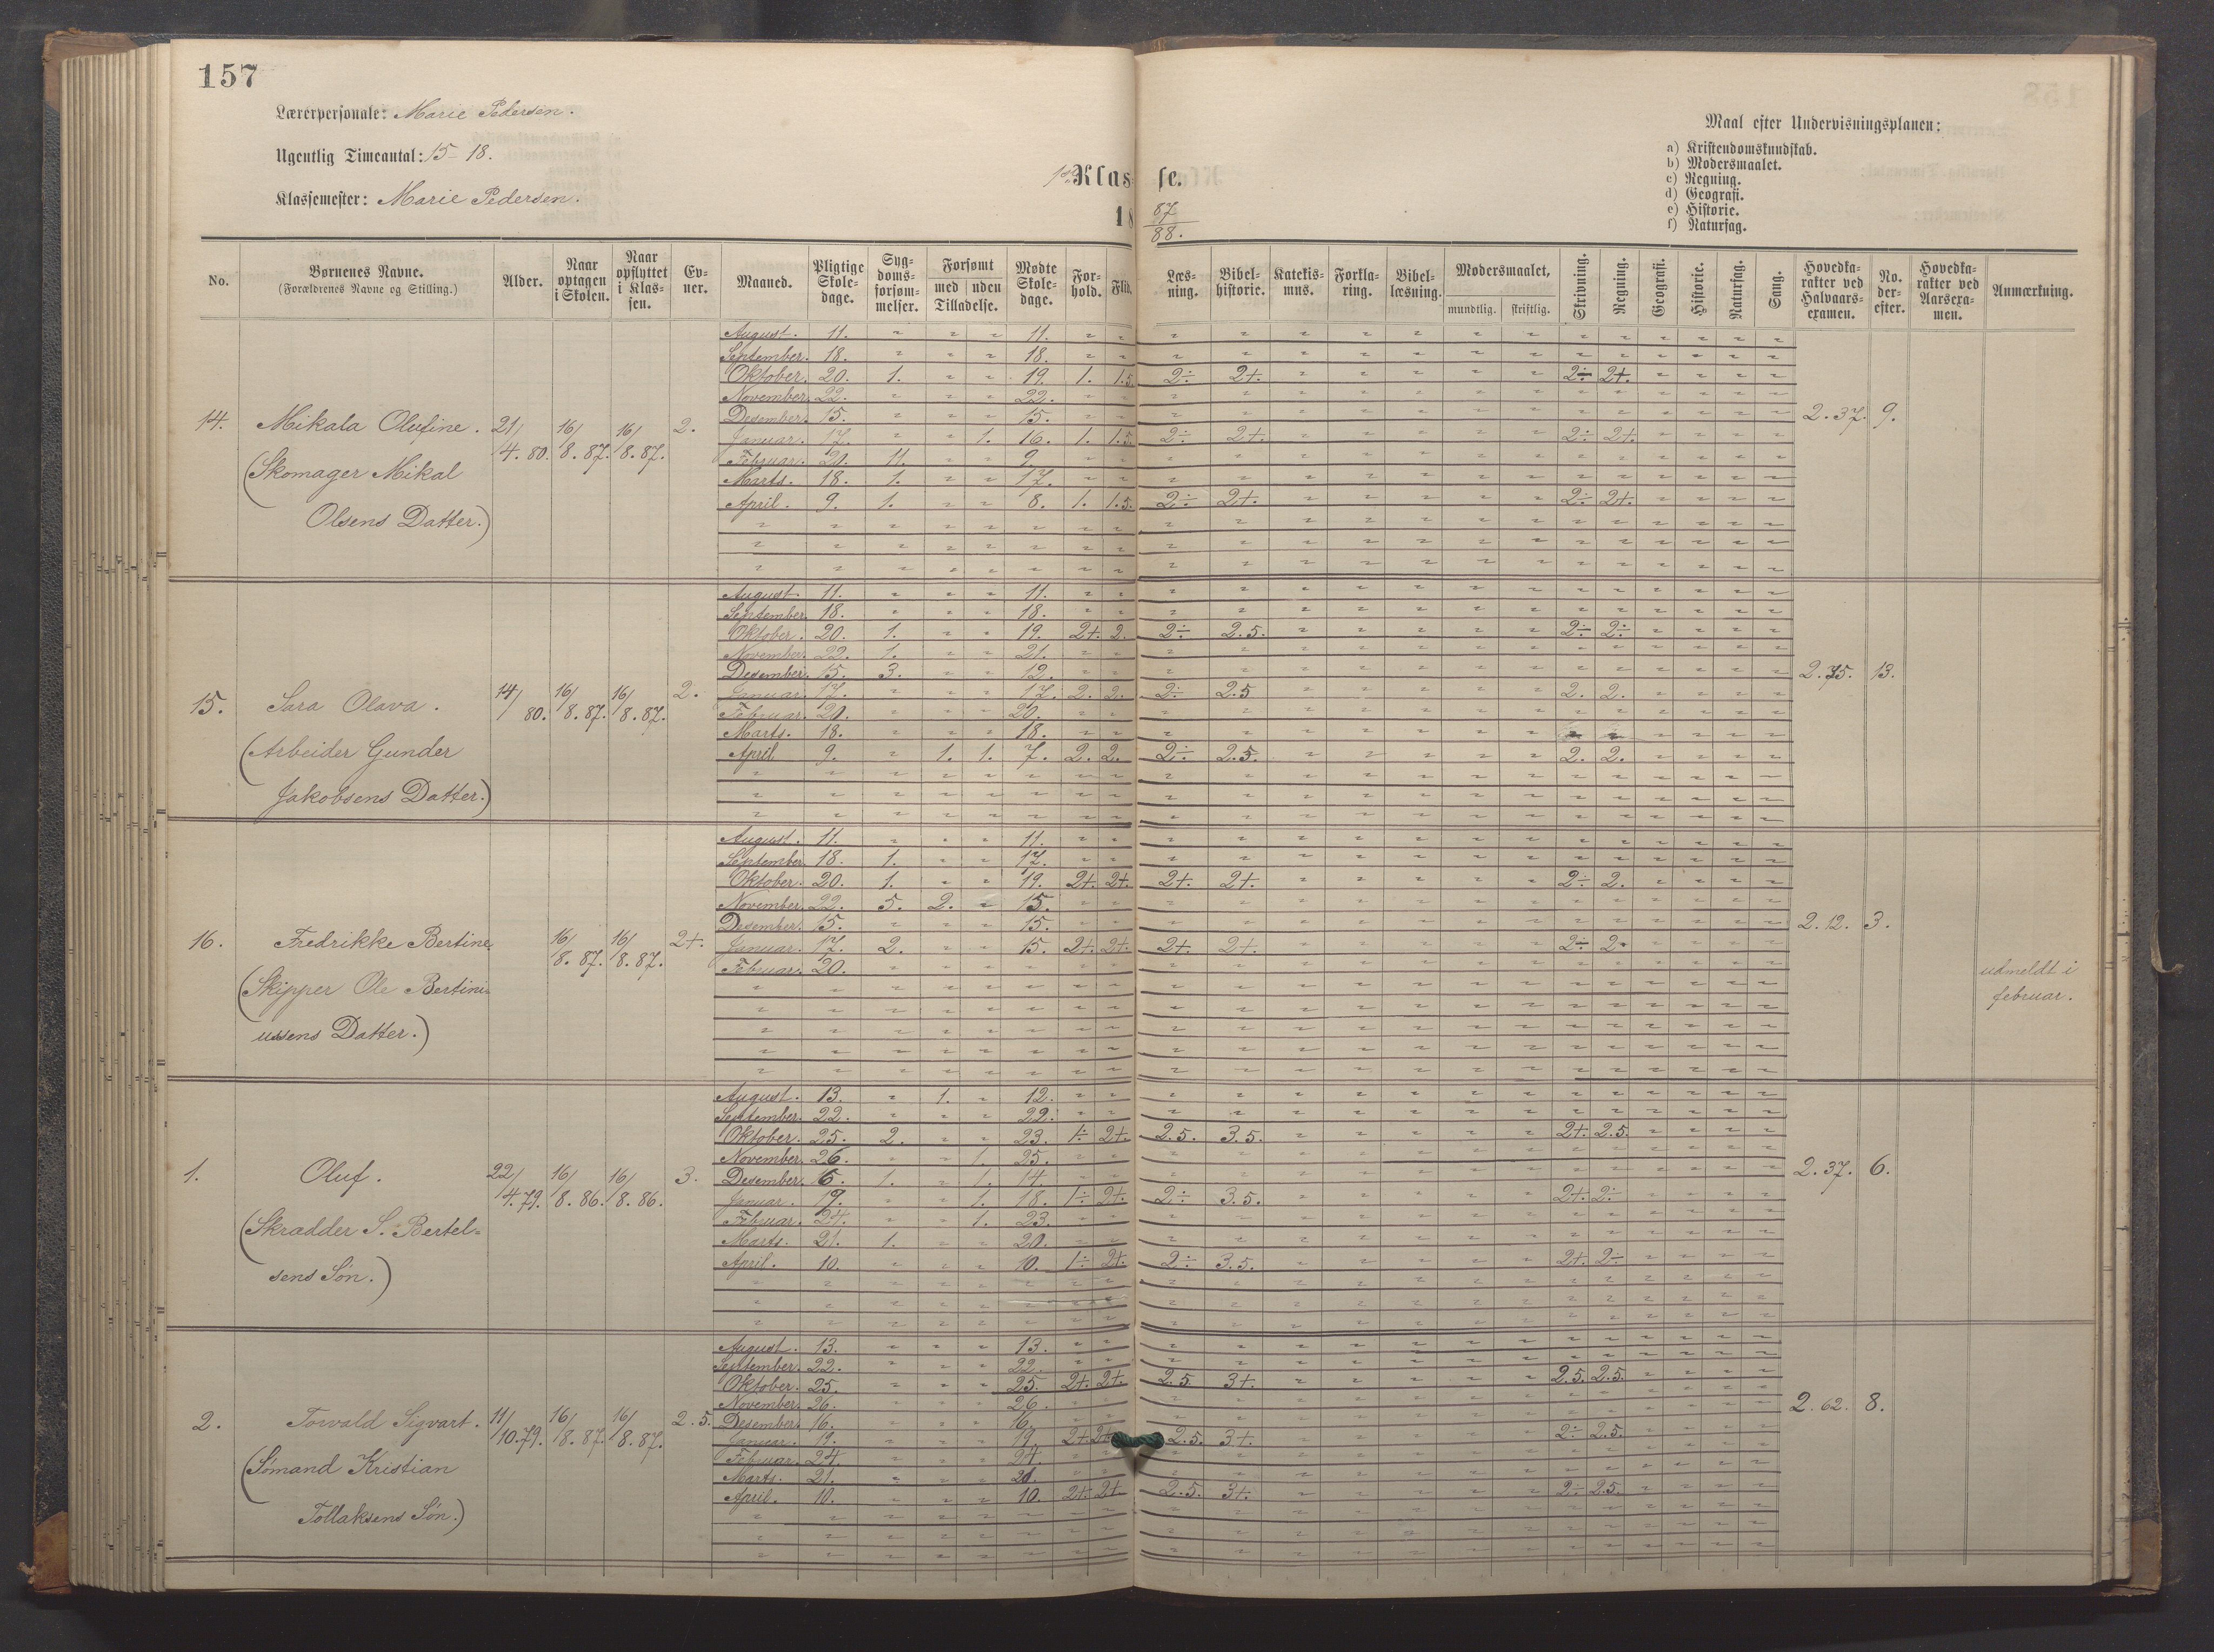 157
Lærerpersonale: Marie Pedersen.
Ugentlig Timeantal: 15-18.
Klassemester: Marie Pedersen.
1ste Klasse.
1887/88.
Maal efter Undervisningsplanen:
a) Kristendomskundskab.
b) Modersmaalet.
c) Regning.
d) Geografi.
e) Historie.
f) Naturfag.
No. | Børnenes Navne. (Forældrenes Navne og Stilling.) | Alder. | Naar optagen i Skolen. | Naar opflyttet i Klassen. | Evner. | Maaned. | Pligtige Skoledage. | Sygdomsforsømmelser. | Forsømt med Tilladelse. | uden | Mødte Skoledage. | Forhold. | Flid. | Læsning. | Bibelhistorie. | Katekismus. | Forklaring. | Bibellæsning. | Modersmaalet, mundtlig. | skriftlig. | Skrivning. | Regning. | Geografi. | Historie. | Naturfag. | Sang. | Hovedkarakter ved Halvaarsexamen. | No. derefter. | Hovedkarakter ved Aarsexamen. | Anmærkning.
14. Mikala Olufine. 21/4. 80. 16/8. 87. 16/8. 87. 2. 2.37. 9.
(Skomager Mikal
Olsens Datter.)
August. 11. " " " 11. " "
September. 18. " " " 18. " "
Oktober. 20. 1. " " 19. 1. 1.5. 2÷ 2+. " " " " " 2÷ 2+. " " " "
November. 22. " " " 22. " "
Desember. 15. " " " 15. " "
Januar. 17. " " 1. 16. 1. 1.5. 2÷ 2+. " " " " " 2÷ 2+. " " " "
Februar. 20. 11. " " 9. " "
Marts. 18. 1. " " 17. " "
April. 9. 1. " " 8. 1. 1.5. 2÷ 2+. " " " " " 2÷ 2+. " " " "
15. Sara Olava. 14/ 80. 16/8. 87. 16/8. 87. 2. 2.75. 13.
(Arbeider Gunder
Jakobsens Datter.)
August. 11. " " " 11. " "
September. 18. " " " 18. " "
Oktober. 20. 1. " " 19. 2+. 2. 2÷ 2.5. " " " " " 2÷ 2÷ " " " "
November. 22. 1. " " 21. " "
Desember. 15. 3. " " 12. " "
Januar. 17. " " " 17. 2. 2. 2÷ 2.5 " " " " " 2. 2. " " " "
Februar. 20. " " " 20. " "
Marts. 18. " " " 18. " "
April 9. " 1. 1. 7. 2. 2. 2÷ 2.5. " " " " " 2. 2. " " " "
16. Fredrikke Bertine 16/8. 87. 16/8. 87. 2+. 2.12. 3. udmeldt i februar.
(Skipper Ole Bertini-
ussens Datter.)
August. 11. " " " 11. " "
September 18. 1. " " 17. " "
Oktober. 20. 1. " " 19. 2+. 2+. 2+. 2+. " " " " " 2÷ 2. " " " "
November. 22. 5. 2. " 15. " "
Desember. 15. " " " 15. " "
Januar. 17. 2. " " 15. 2+. 2+. 2+. 2+. " " " " " 2÷ 2. " " " "
Februar. 20. " " " " " "
1. Oluf. 22/4.79. 16/8. 86. 16/8. 86. 3. 2.37. 6.
(Skrædder S. Bertel=
sens Søn.)
August. 13. " 1. " 12. " "
September. 22. " " " 22. " "
Oktober. 25. 2. " " 23. 1÷ 2+. 2.5. 3.5. " " " " " 2+. 2.5. " " " "
November. 26. " " 1. 25. " "
Desember. 16. 1. " 1. 14. " "
Januar. 19. " " 1. 18. 1÷ 2+. 2÷ 3.5. " " " " " 2+. 2÷ " " " "
Februar. 24. " " 1. 23. " "
Marts. 21. 1. " " 20. " "
April. 10. " " " 10. 1÷ 2+. 2÷ 3.5. " " " " " 2+. 2÷ " " " "
2. Torvald Sigvart. 11/10.79. 16/8. 87. 16/8. 87. 2.5. 2.62. 8.
(Sømand Kristian
Tollaksens Søn.)
August. 13. " " " 13. " "
September. 22. " " " 22. " "
Oktober. 25. " " " 25. 2+. 2+. 2.5. 3+. " " " " " 2.5. 2.5. " " " "
November. 26. " " " 26. " "
Desember. 16. " " " 16. " "
Januar. 19. " " " 19. 2+. 2+. 2.5. 3+. " " " " " 2÷ 2.5. " " " "
Februar. 24. " " " 24. " "
Marts. 21. " " " 21. " "
April. 10. " " " 10. 2+. 2+ 2.5. 3+. " " " " " 2÷ 2.5. " " " "